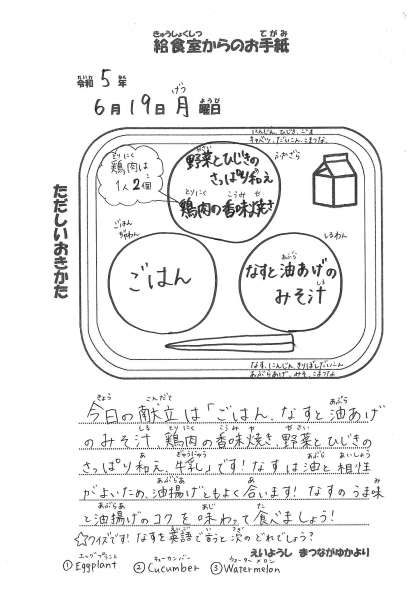 給食室からのお手紙
令和5年
6月19日月曜日
ただしいおきかた
鶏肉は
1人2個
野菜とひじきの
さっぱり和え
鶏肉の香味焼き
にんじん、ひじき、ごま
キャベツ、だいこん、こまつな
ふかざら
ごはん
ちゃわん
ごはん
しるわん
なすと油あげの
みそ汁
なす、にんじん、きりぼしだいこん
あぶらあげ、みそ、こまつな
今日の献立は「ごはん、なすと油あげ
のみそ汁、鶏肉の香味焼き、野菜とひじきの
さっぱり和え、牛乳」です!なすは油と相性
がよいため、油揚げともよく合います!なすのうま味
と油揚げのコクを味わって食べましょう!
☆クイズです!なすを英語で言うと次のどれでしょう?
えいようし まつながゆかより
①Eggplant ②Cucumber ③Watermelon